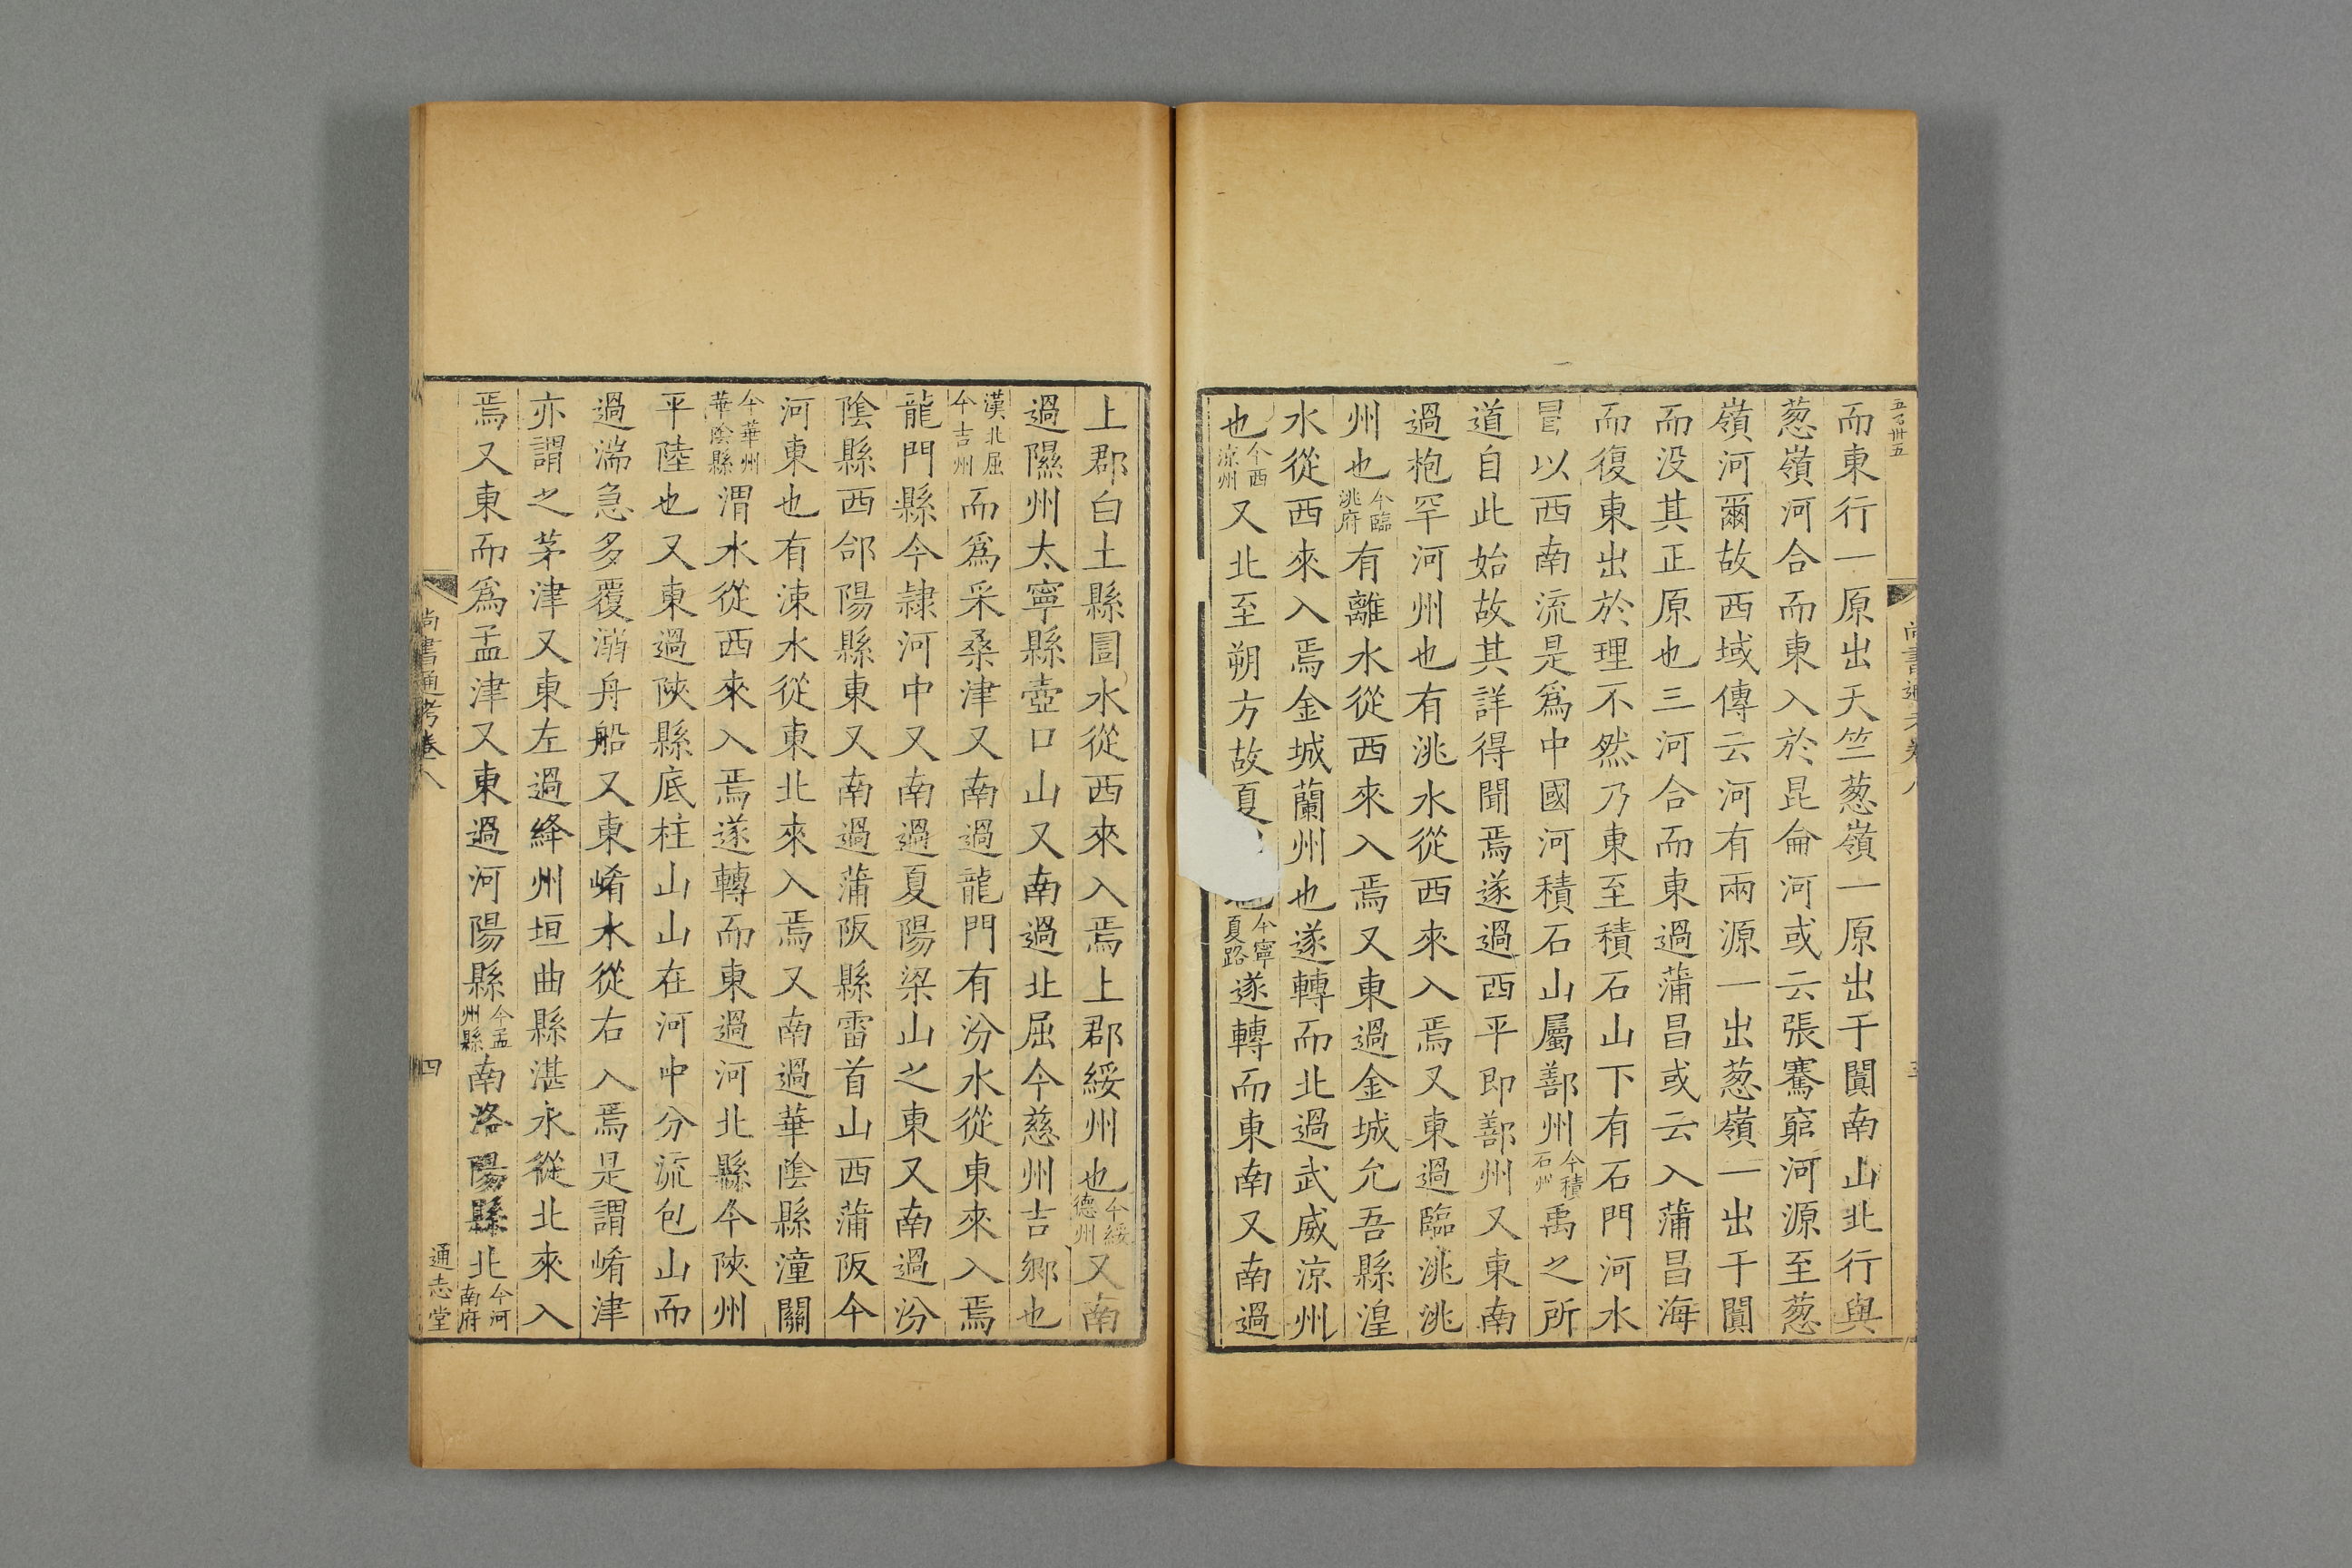 而東行一原出天竺葱嶺一原出于闐南山北行與
葱嶺河合而東入於昆侖河或云張騫窮河源至葱
嶺河爾故西域傳云河有兩源一出葱嶺一出于闐
而没其正原也三河合而東過蒲昌或云入蒲昌海
而復東出於理不然乃東至積石山下有石門河水
冒以西南流是爲中國河積石山屬鄯州今積石州禹之所
道自此始故其詳得聞焉遂過西平即鄯州又東南
過枹罕河州也有洮水從西來入焉又東過臨洮洮
州也今臨洮府有離水從西來入焉又東過金城允吾縣湟
水從西來入焉金城蘭州也遂轉而北過武威涼州
也今西涼州又北至朔方故夏今寧夏路遂轉而東南又南過
上郡白土縣圁水從西來入焉上郡綏州也今綏德州又南
過隰州太寧縣壺口山又南過北屈今慈州吉鄉也
漢北屈今吉州而爲采桑津又南過龍門有汾水從東來入焉
龍門縣今隷河中又南過夏陽梁山之東又南過汾
陰縣西郃陽縣東又南過蒲阪縣雷首山西蒲阪今
河東也有涑水從東北來入焉又南過華陰縣潼關
今華州華陰縣渭水從西來入焉遂轉而東過河北縣今陝州
平陸也又東過陝縣底柱山山在河中分流包山而
過湍急多覆溺舟船又東崤水從右入焉是謂崤津
亦謂之茅津又東左過絳州垣曲縣湛水從北來入
焉又東而爲孟津又東過河陽縣今孟州縣南洛陽縣北今河南府
尚書通考卷八
四
通志堂